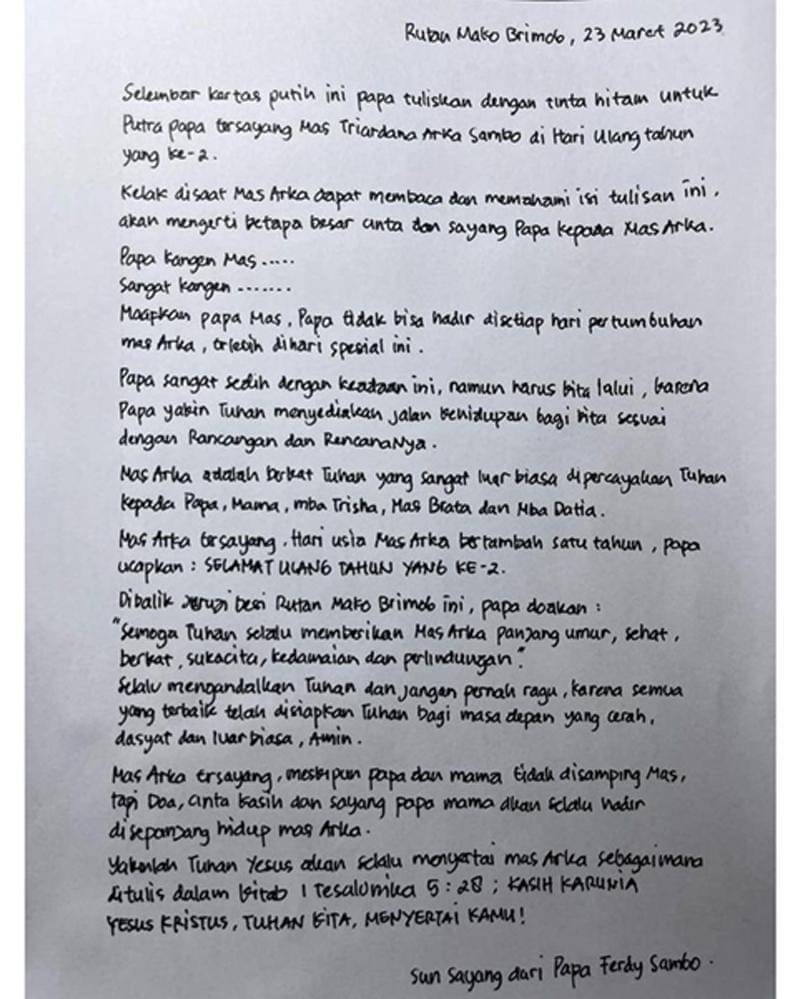 Rutan Mako Brimob, 23 Maret 2023
Selembar kertas putih ini papa tuliskan dengan tinta hitam untuk
Putra papa tersayang Mas Triardana Arka Sambo di Hari Ulang tahun
yang ke-2.
Kelak disaat Mas Arka dapat membaca dan memahami isi tulisan ini,
akan mengerti betapa besar cinta dan sayang Papa kepada Mas Arka.
Papa kangen Mas.....
Sangat kangen .......
Maafkan papa Mas, Papa tidak bisa hadir disetiap hari pertumbuhan
mas Arka, terlebih dihari spesial ini.
Papa sangat sedih dengan keadaan ini, namun harus kita lalui, karena
Papa yakin Tuhan menyediakan jalan kehidupan bagi kita sesuai
dengan Rancangan dan RencanaNya.
Mas Arka adalah berkat Tuhan yang sangat luar biasa dipercayakan Tuhan
kepada Papa, Mama, mba Trisha, Mas Brata dan Mba Datia.
Mas Arka tersayang. Hari usia Mas Arka bertambah satu tahun, papa
ucapkan : SELAMAT ULANG TAHUN YANG KE-2.
Dibalik Jeruzi besi Rutan Mako Brimob ini, papa doakan :
"Semoga Tuhan selalu memberikan Mas Arka panjang umur, sehat,
berkat, sukacita, kedamaian dan perlindungan."
Selalu mengandalkan Tuhan dan jangan pernah ragu, karena semua
yang terbaik telah disiapkan Tuhan bagi masa depan yang cerah,
dasyat dan luar biasa, Amin.
Mas Arka tersayang, meskipun papa dan mama tidak disamping Mas,
tapi Doa, cinta kasih dan sayang papa mama akan selalu hadir
disepanjang hidup mas Arka.
Yakinlah Tuhan Yesus akan selalu menyertai mas Arka sebagaimana
ditulis dalam kitab 1 Tesalonika 5:28 ; KASIH KARUNIA
YESUS KRISTUS, TUHAN KITA, MENYERTAI KAMU!
Sun sayang dari Papa Ferdy Sambo.